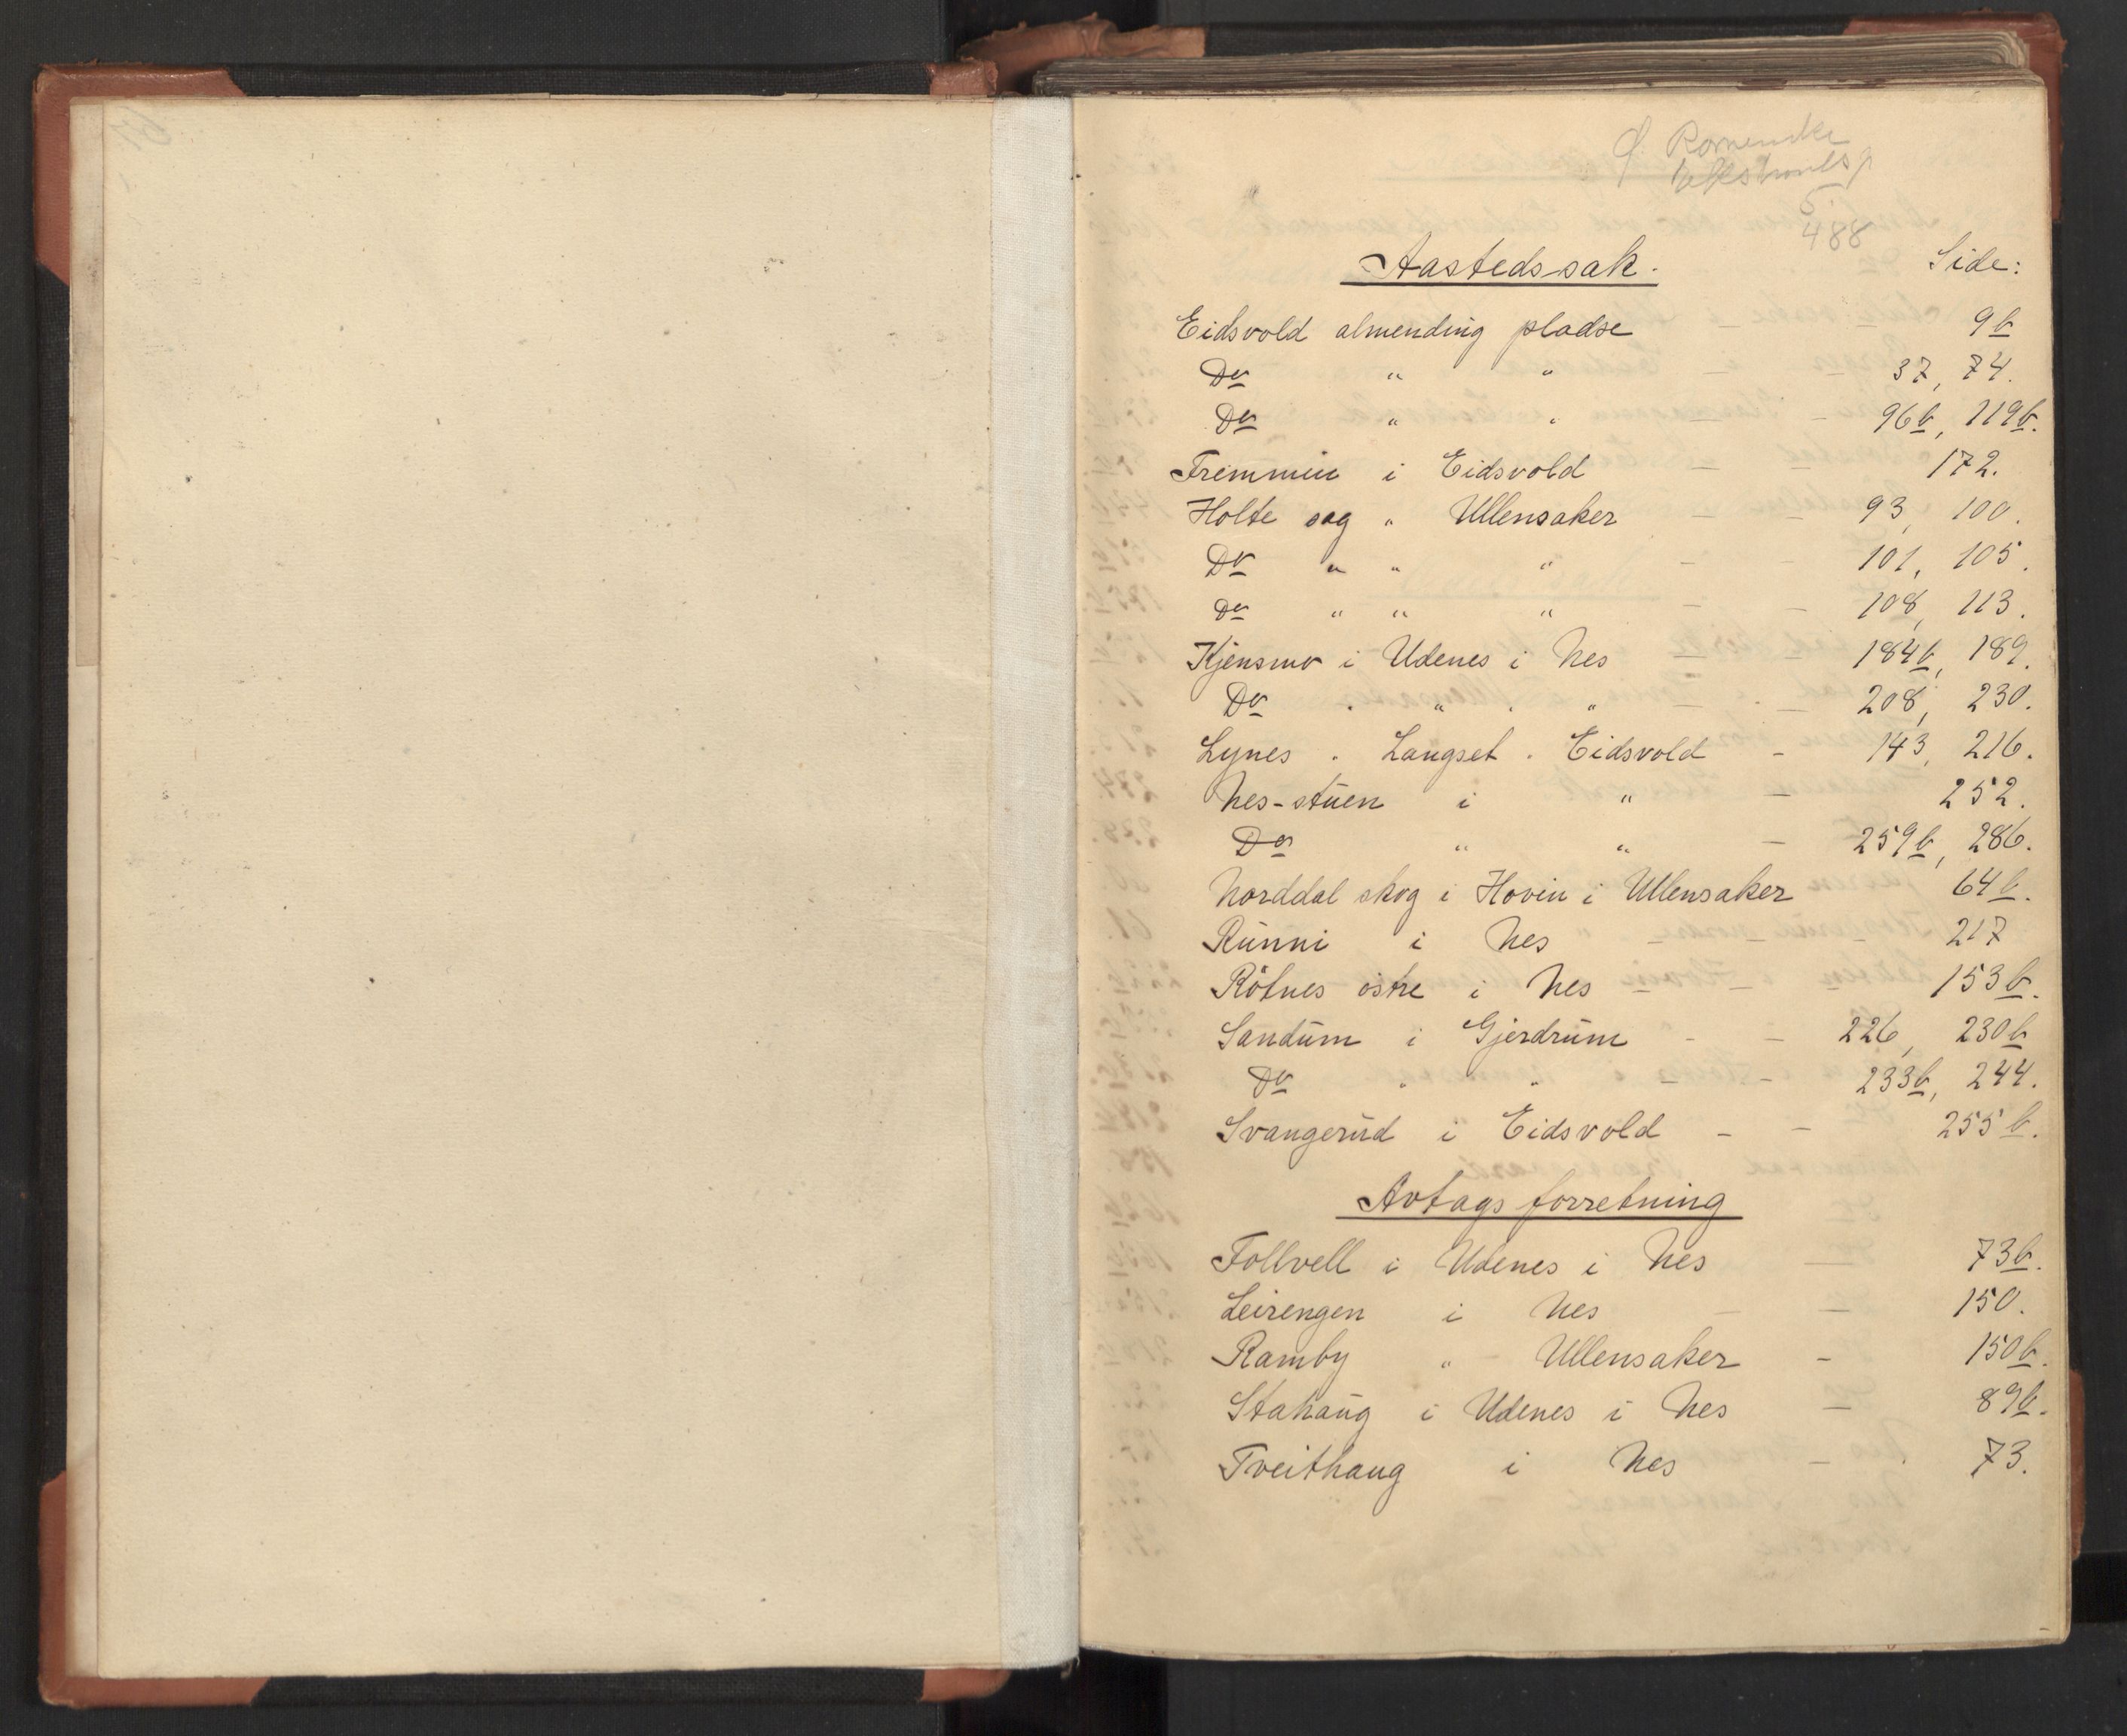 Ø. Romerike
5.
488
Aastedssak. Side:
Eidsvold almending pladse 9b
Do " " 37, 74.
Do " " 96b, 119b.
Fremmin i Eidsvold — 172.
Holte sag " Ullensaker — — 93, 100.
Do " " " — — 101, 105.
Do " " " — — 108, 113.
Kjensmo i Udenes i Nes — 184b, 189.
Do . " . " — — 208, 230.
Lynes . Langset . Eidsvold — 143, 216.
Nes-stuen i " — 252.
Do " " — 259b, 286.
Norddal skog i Hovin i Ullensaker 64b.
Runni i Nes — 217
Rötnes östre i Nes — — 153b.
Sandum i Gjerdrum — — 226, 230b
Do " " — — 233b, 244.
Svangerud i Eidsvold — — 255b.
Avtags forretning
Follvell i Udenes i Nes — 73b.
Leirengen i Nes — 150.
Ramby " Ullensaker — 150b.
Stahaug i Udenes i Nes — 89b.
Tveithaug i Nes — 73.